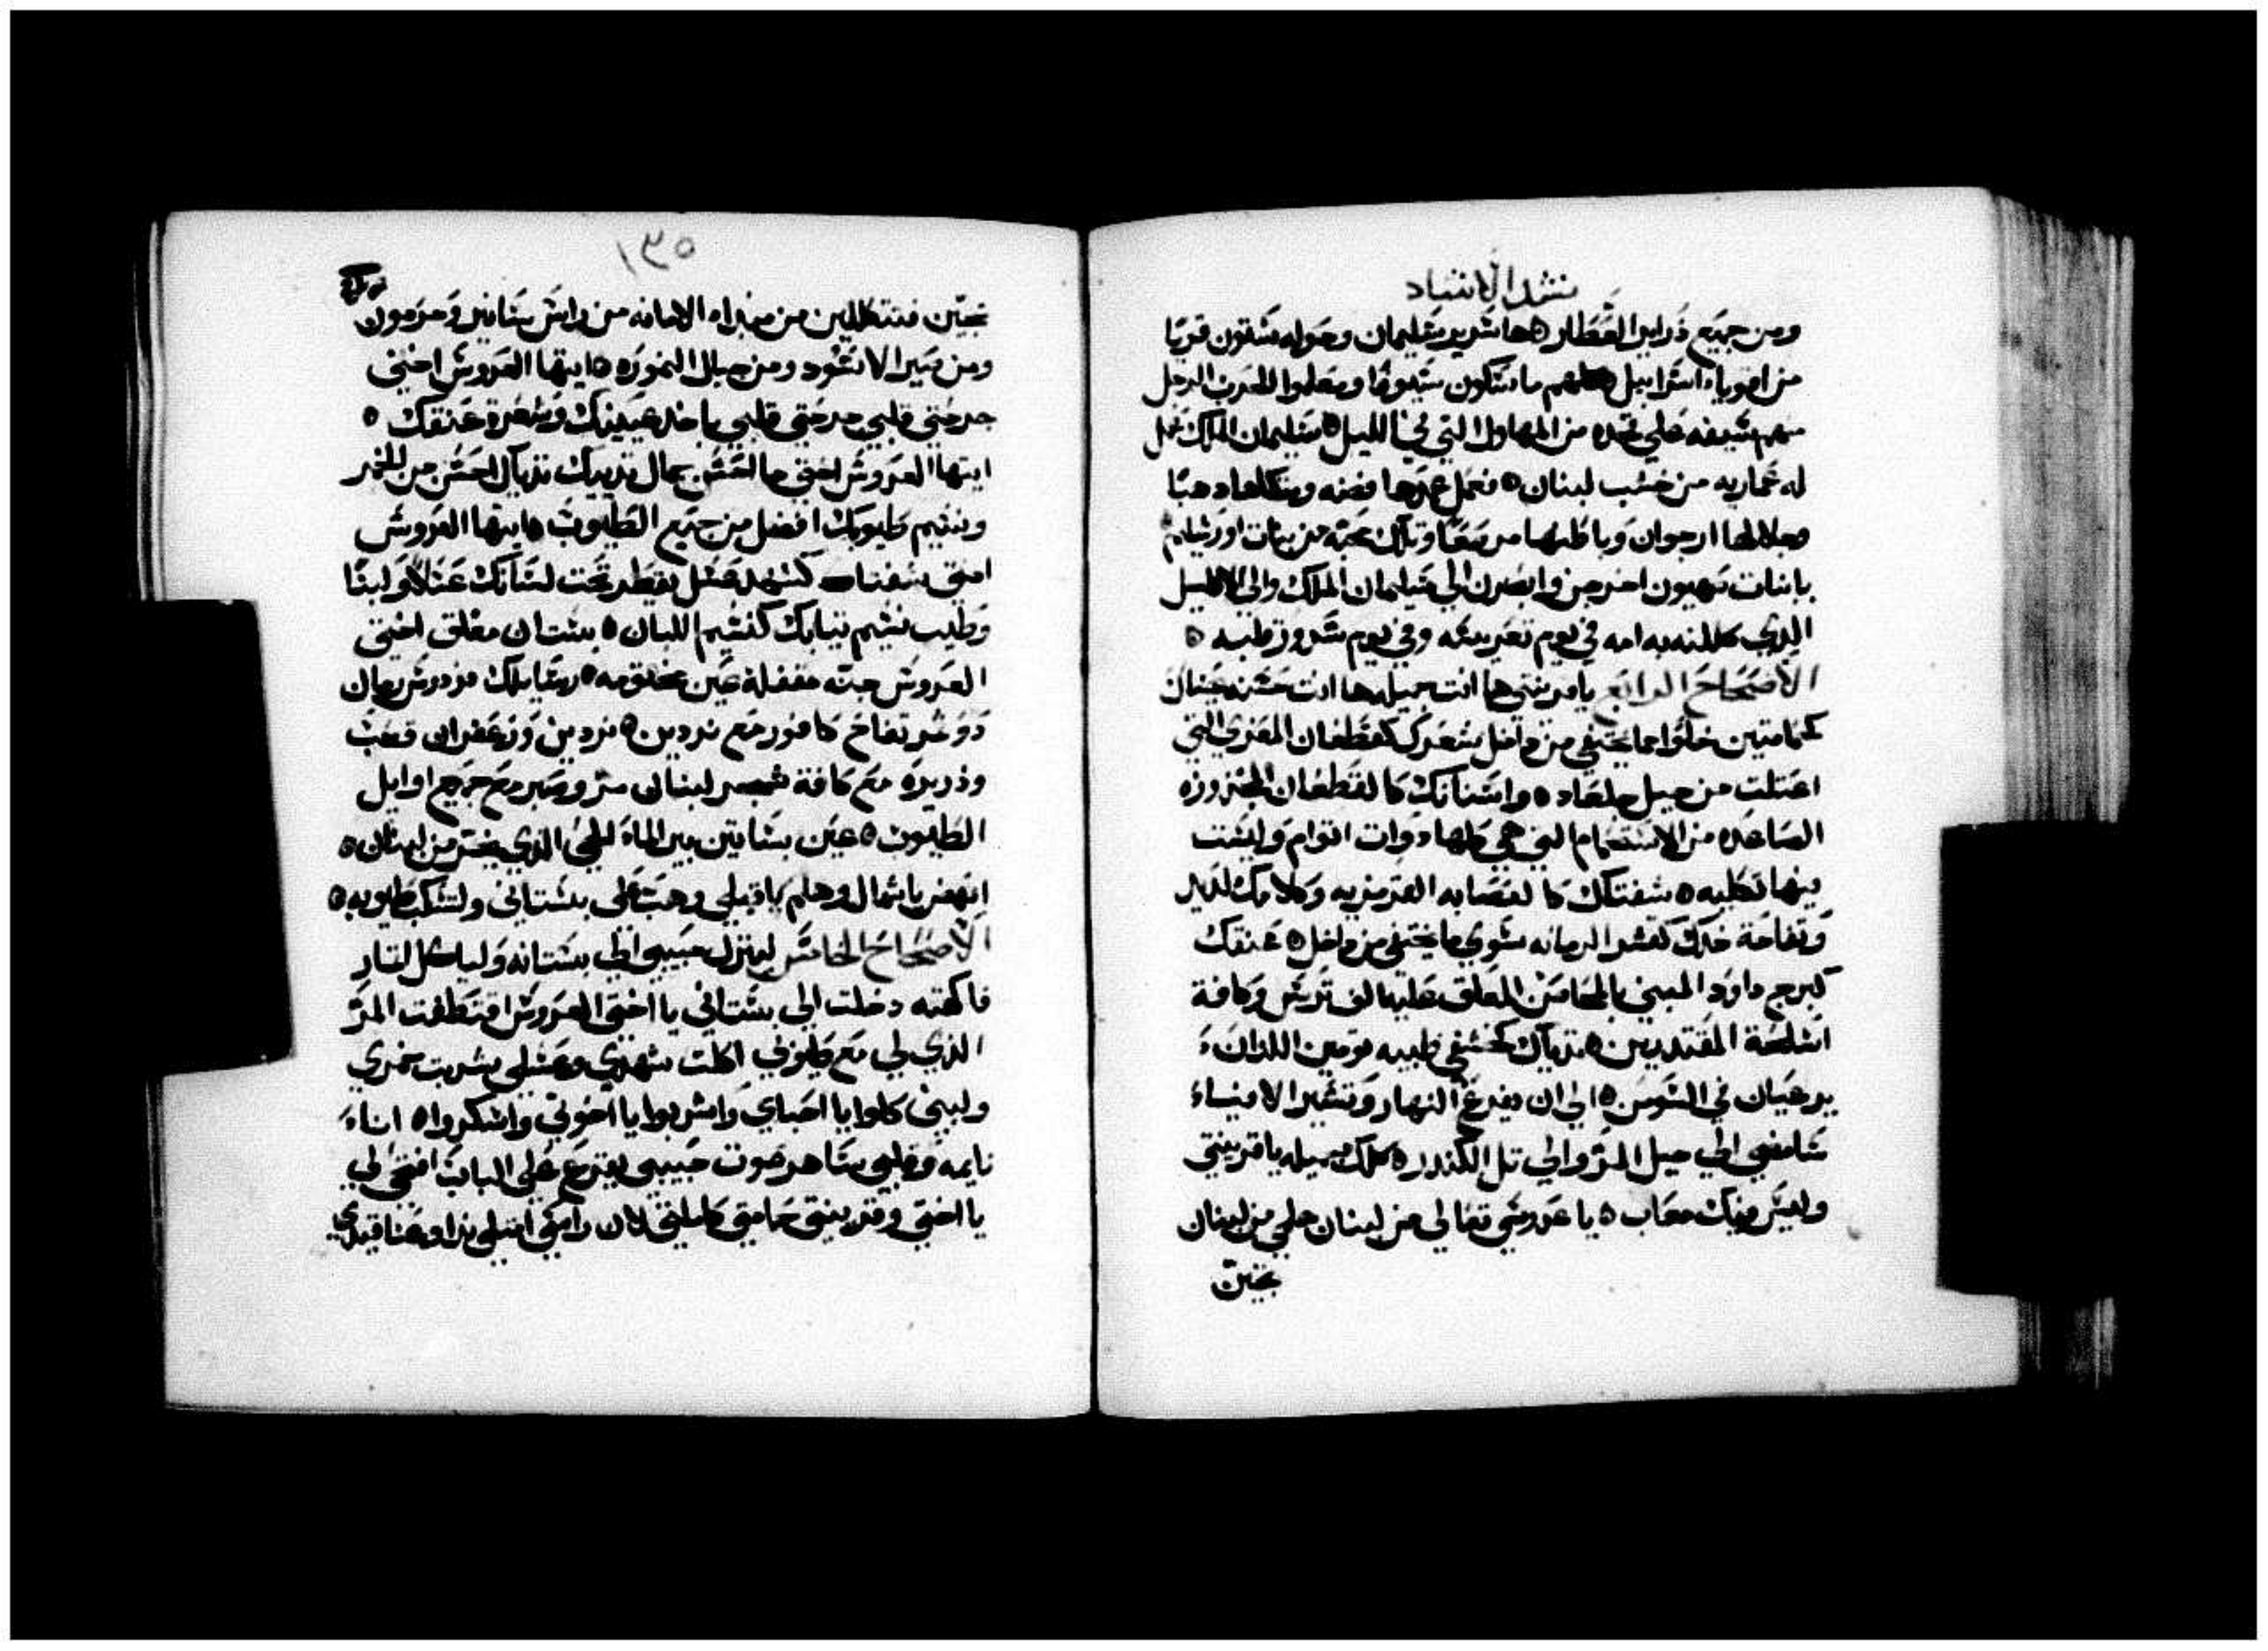 نشد الانشاد
ومن جميع ذراير العطار ه ها سرير سليمان وحوله ستون قويا
من اقوياء اسراييل كلهم ماسكون سيوفا ومعلموا الحرب الرجل
منهم سيفه علي فخده من المهاول التي في الليل ه سليمان الملك عمل
له عماريه من خشب لبنان ه فعمل عمدها فضه ومتكاها دهبا
وجلالها ارجوان وباطنها مرصعا وتلك محبة من بنات اورشليم
يابنات صهيون اخرجن وابصرن الي سليمان الملك والي الاكليل
الذي كللته به امه في يوم تعريسه وفي يوم سرور قلبه ه
الاصحاح الرابع ياقرينتي ها انت جميله ها انت حسنه عيناك
كحمامتين خلوا مما يختفي من داخل شعرك كقطعان المعزي التي
اعتلت من جبل جلعاد ه واسنانك كالقطعان المجزوزه
الصاعده من الاستحمام التي هي كلها دوات اتوام وليست
فيها تكليه ه شفتك كالعصابه القرمزيه وكلامك لذيذ
وتفاحة خدك كقشر الرمانه سوي ما يختفي من داخل ه عنقك
كبرج داود المبني بالمحاسن المعلق عليها الف ترس وكافة
اسلحة المقتدرين ه ثدياك كخشفي ظبيه تومين اللدان
يرعيان في السوسن ه الي ان يفرغ النهار وتشير الافياء
سامضي الي جبل المر والي تل الكندر ه كلك جميله ياقرينتي
وليس فيك معاب ه يا عروسي تعالي من لبنان هلمي من لبنان
تجيين
١٣٥
تجيين فتتكللين من مبداه الامانه من راس سانير وحرمون
ومن صير الاسود ومن جبال النموره ه ايتها العروس اختي
جرحتي قلبي جرحتي قلبي باحد عينيك وشعرة عنقك ه
ايتها العروس اختي ما احسن جمال ثدييك ثدياك احسن من الخمر
ونسيم طيوبك افضل من جميع الطيوب ه ايتها العروس
اختي شفتاك كشهد عسل يقطر تحت لسانك عسلا ولبنا
وطيب نسيم ثيابك كنسيم اللبان ه بستان مغلق اختي
العروس جنه مقفلة عين مختومه ه رسايلك فردوس رمان
دو ثمر تفاح كافور مع نردين ه نردين وزعفران قصب
وذريره مع كافة شجر لبنان مر وصبر مع جميع اوايل
الطيوب ه عين بساتين بير الماء الحي الذي يخر من لبنان ه
انهض ياشمال وهلم ياقبلي وهب علي بستاني ولتسكب طيوبه ه
الاصحاح الخامس لينزل حبيبي الي بستانه ولياكل اثمار
فاكهته دخلت الي بستاني يا اختي العروس اقتطفت المر
الذي لي مع طيوبي اكلت شهدي وعسلي شربت خمري
ولبني كلوا يا احباي واشربوا يا اخوتي واسكروا ه انا
نايمه وقلبي ساهر صوت حبيبي يقرع علي الباب افتحي لي
يا اختي وقرينتي حمامتي كاملتي لان راسي امتلي ندا وعناقيدي